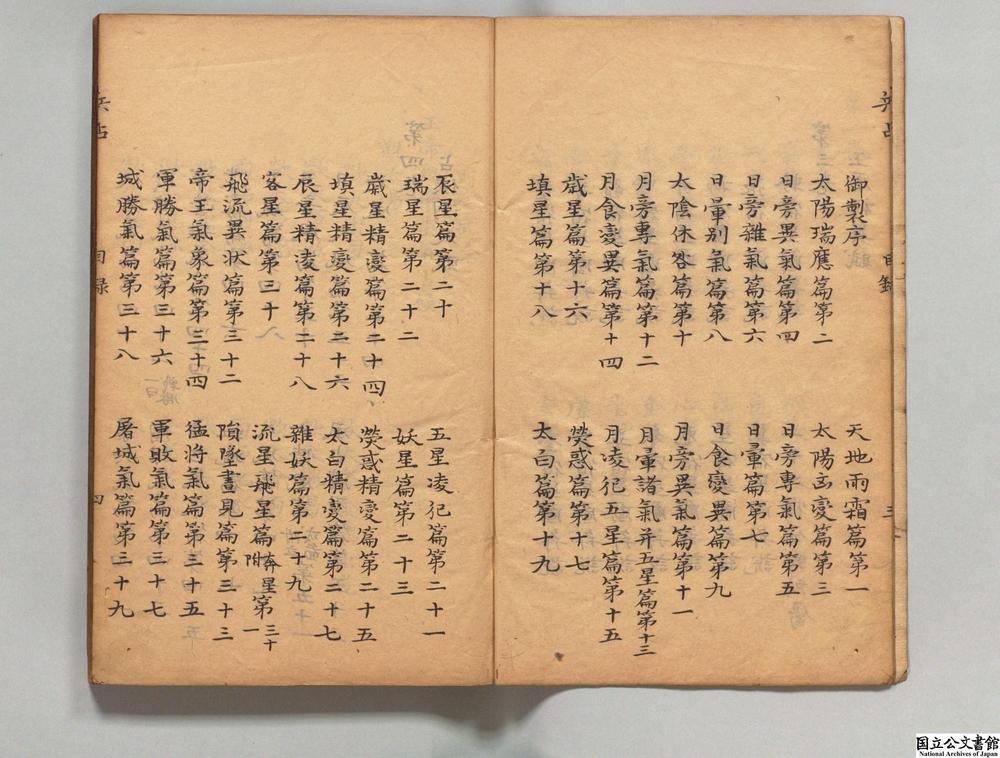 兵占 目録 三
御製序 天地雨霜篇第一
太陽瑞應篇第二 太陽㐫變篇第三
日旁異氣篇第四 日旁專氣篇第五
日旁雜氣篇第六 日暈篇第七
日暈別氣篇第八 日食變異篇第九
太陰休咎篇第十 月旁異氣篇第十一
月旁專氣篇第十二 月暈諸氣并五星篇第十三
月食變異篇第十四 月凌犯五星篇第十五
歲星篇第十六 熒惑篇第十七
填星篇第十八 太白篇第十九
辰星篇第二十 五星凌犯篇第二十一
瑞星篇第二十二 妖星篇第二十三
歲星精變篇第二十四 熒惑精變篇第二十五
填星精變篇第二十六 太白精變篇第二十七
辰星精凌篇第二十八 雜妖篇第二十九
客星篇第三十 流星飛星篇附奔星第三十一
飛流異狀篇第三十二 隕墜晝見篇第三十三
帝王氣象篇第三十四 猛將氣篇第三十五
軍勝氣篇第三十六 軍敗氣篇第三十七
城勝氣篇第三十八 屠城氣篇第三十九
兵占 目録 四
国立公文書館
National Archives of Japan